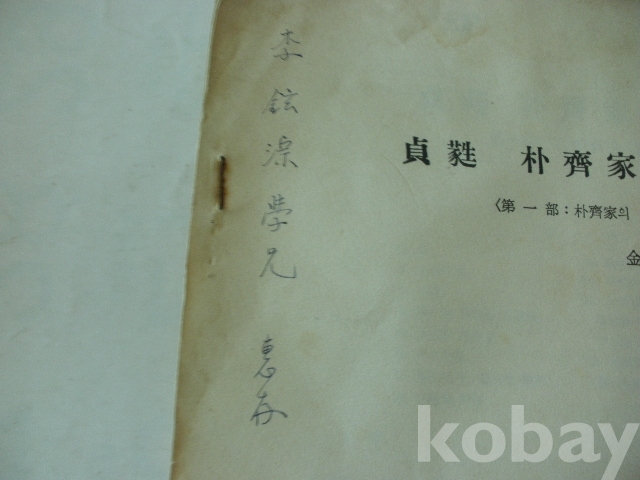 李鉉淙學兄 惠存
貞蕤 朴齊家
〈第一部：朴齊家의
金
kobay